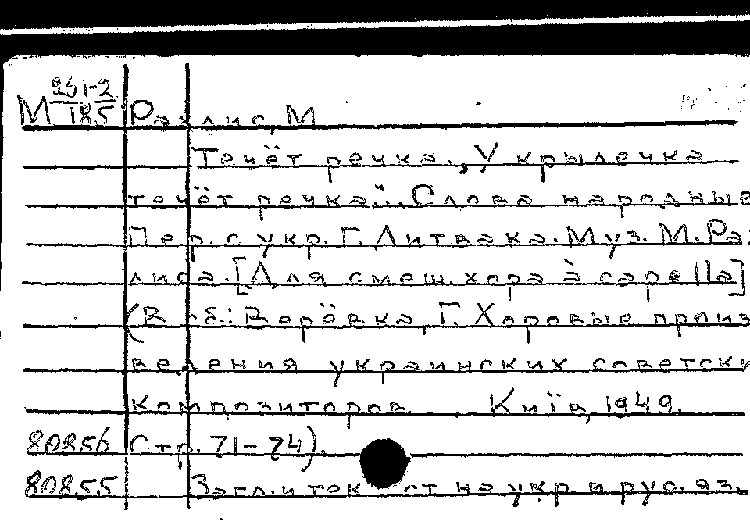 М 251-2
185 Рахлис, М
Течёт речка. „У крылечка
течёт речка". Слова народные
Пер. с укр. Г. Литвака. Муз. М. Рах
лиса. [Для смеш. хора à capella]
(В сб.: Верёвка, Г. Хоровые произ
ведения украинских советски
композиторов Київ, 1949.
80856 Стр. 71-74).
80855 Загл. и текст на укр и рус. яз.